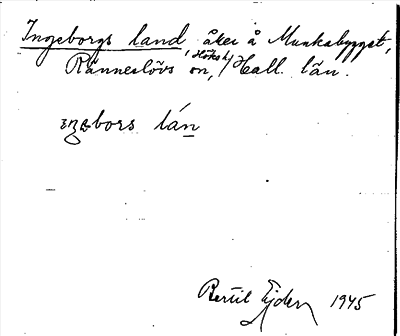 Ingeborgs land, åker å Munkabygget,
Ränneslövs sn, Höks hd, Hall. län.
bors lán
Bertil Ejder 1945